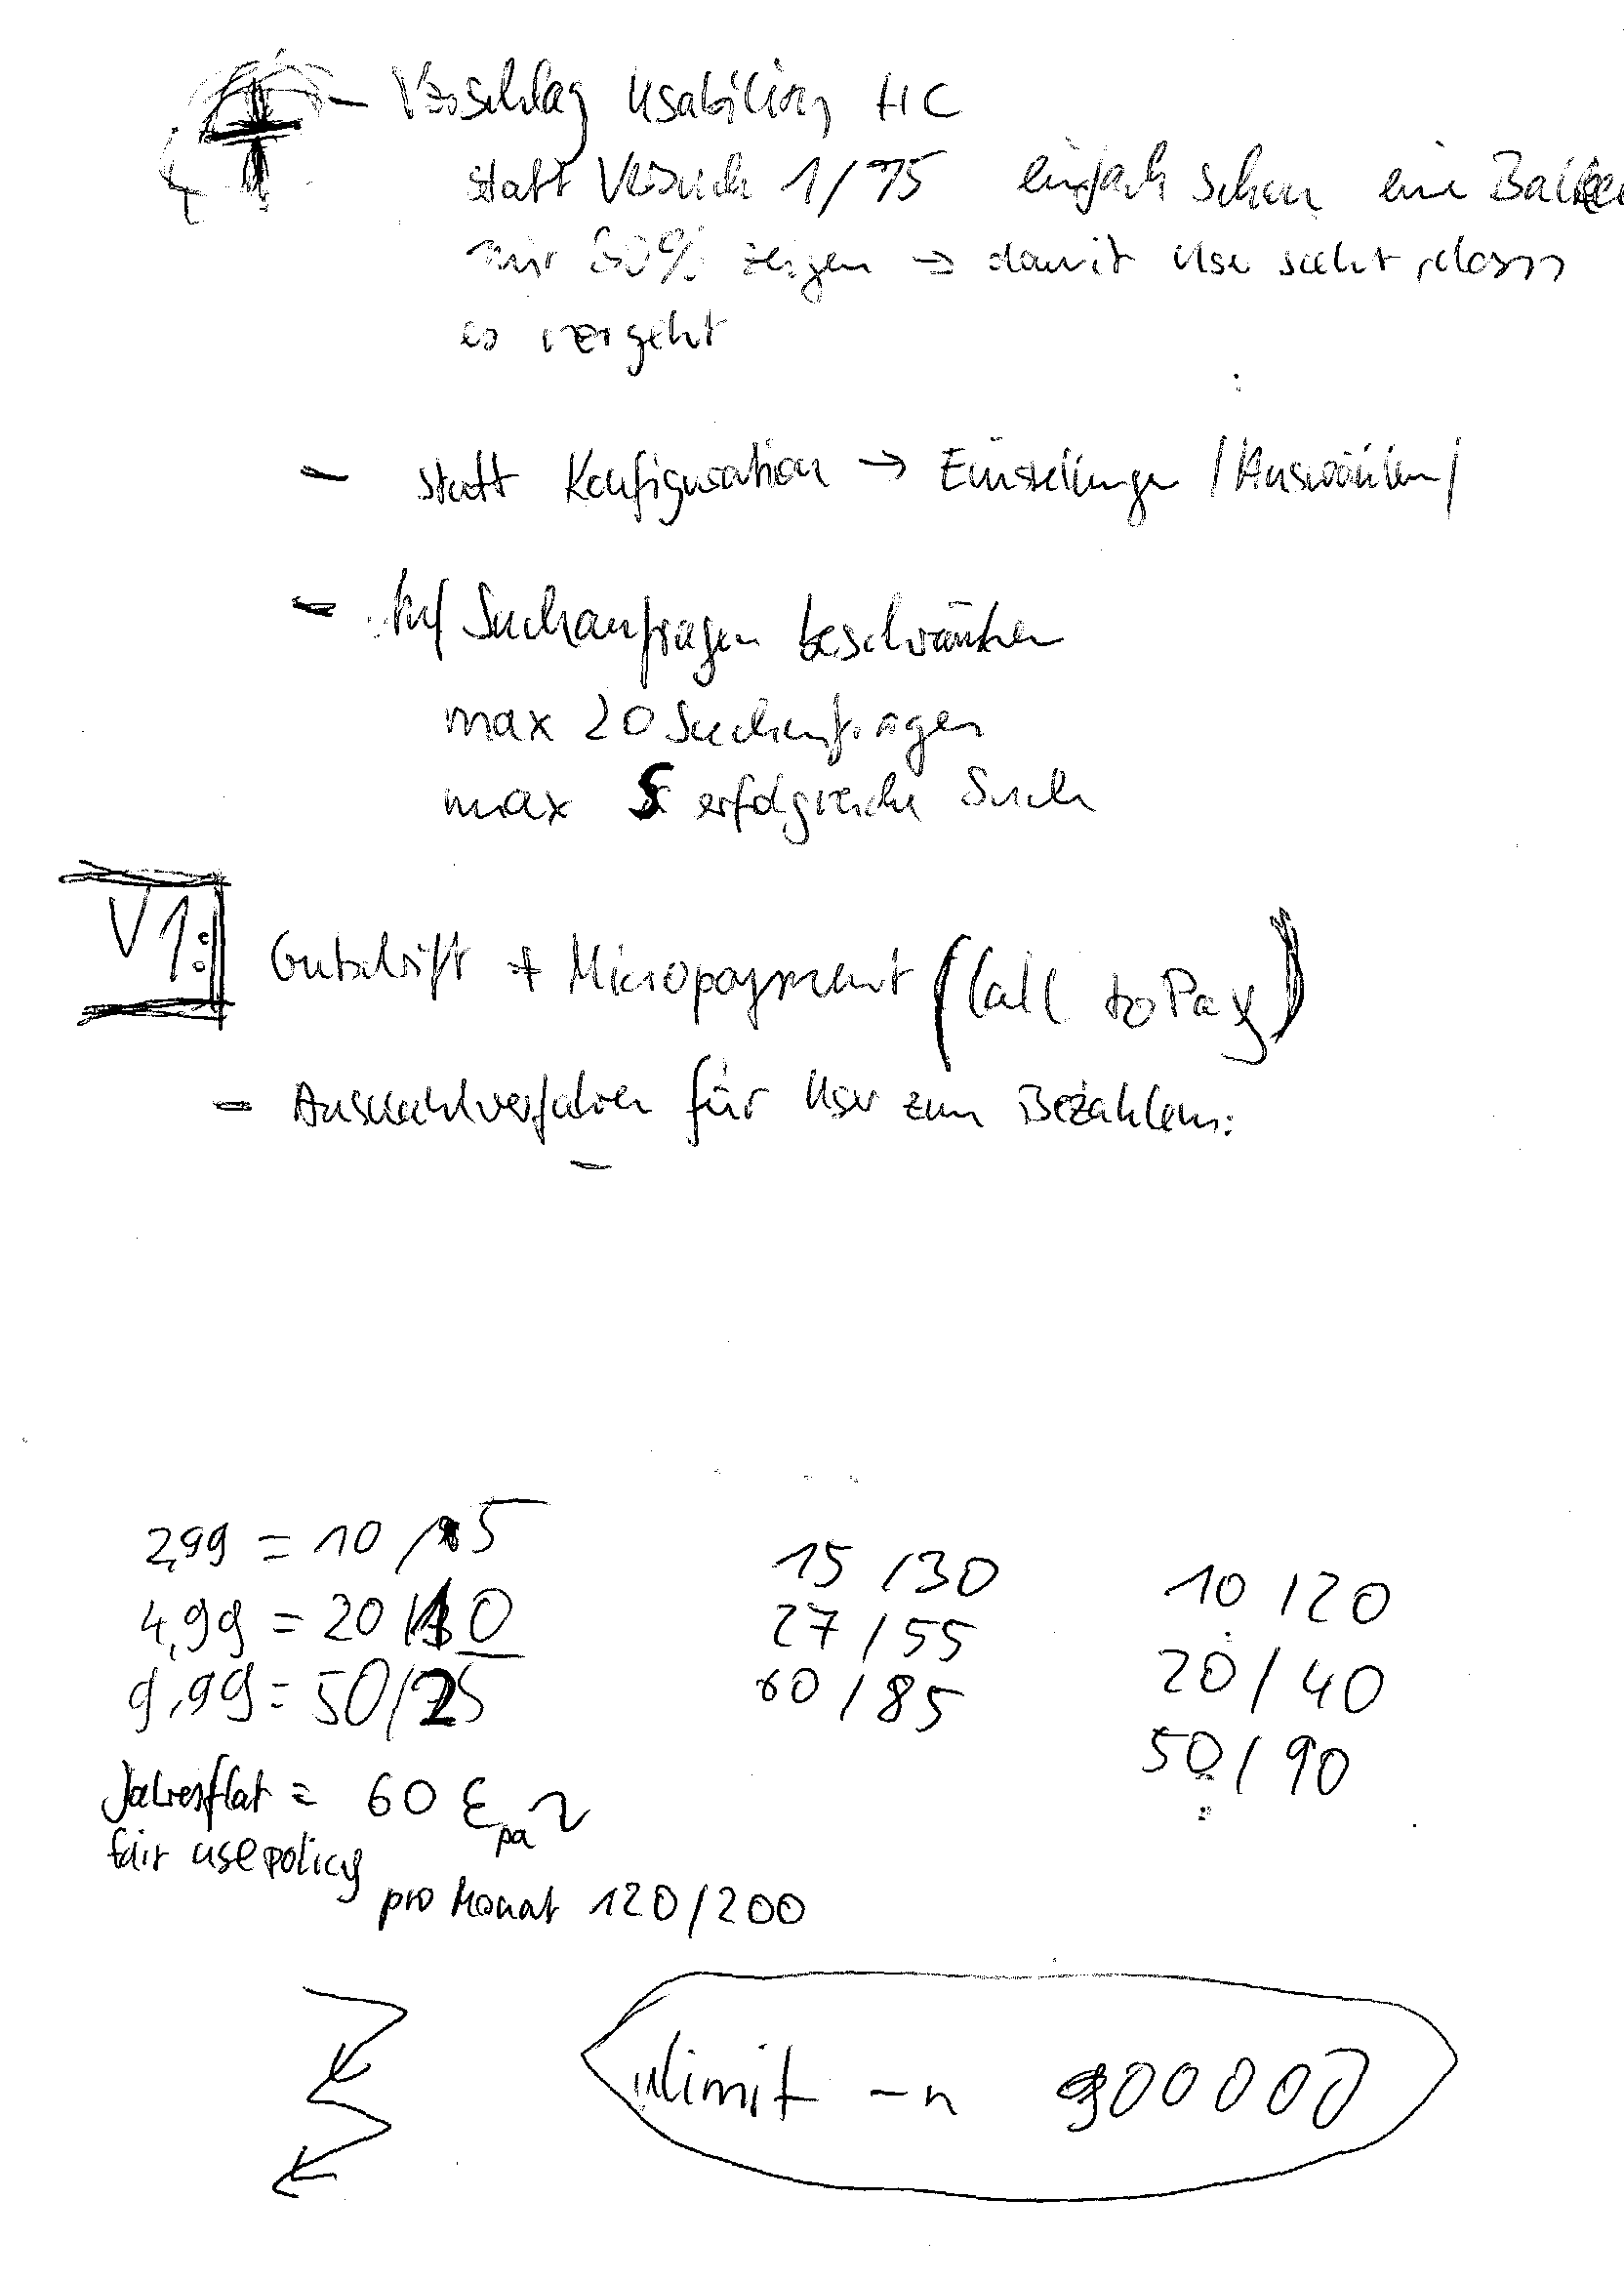 - Vorschlag Usability HC
statt Versuch 1/75 einfach schon eine Balken
mir 60% zeigen → damit User sieht, dass
es vergeht
- statt Konfiguration → Einstellungen / Auswählen /
- Auf Suchanfragen beschränken
max 20 Suchanfragen
max 5 erfolgreiche Such
V1:
Gutschrift + Micropayment (Call to Pay)
- Auswahlverfahren für User zum Bezahlen:
-
2,99 = 10 / 5
4,99 = 20 / 10
9,99 = 50/25
15 / 30
27 / 55
60 / 85
10 / 20
20 / 40
50 / 90
Jahresflat = 60 € pa
fair use policy
pro Monat 120/200
ulimit -n 900000